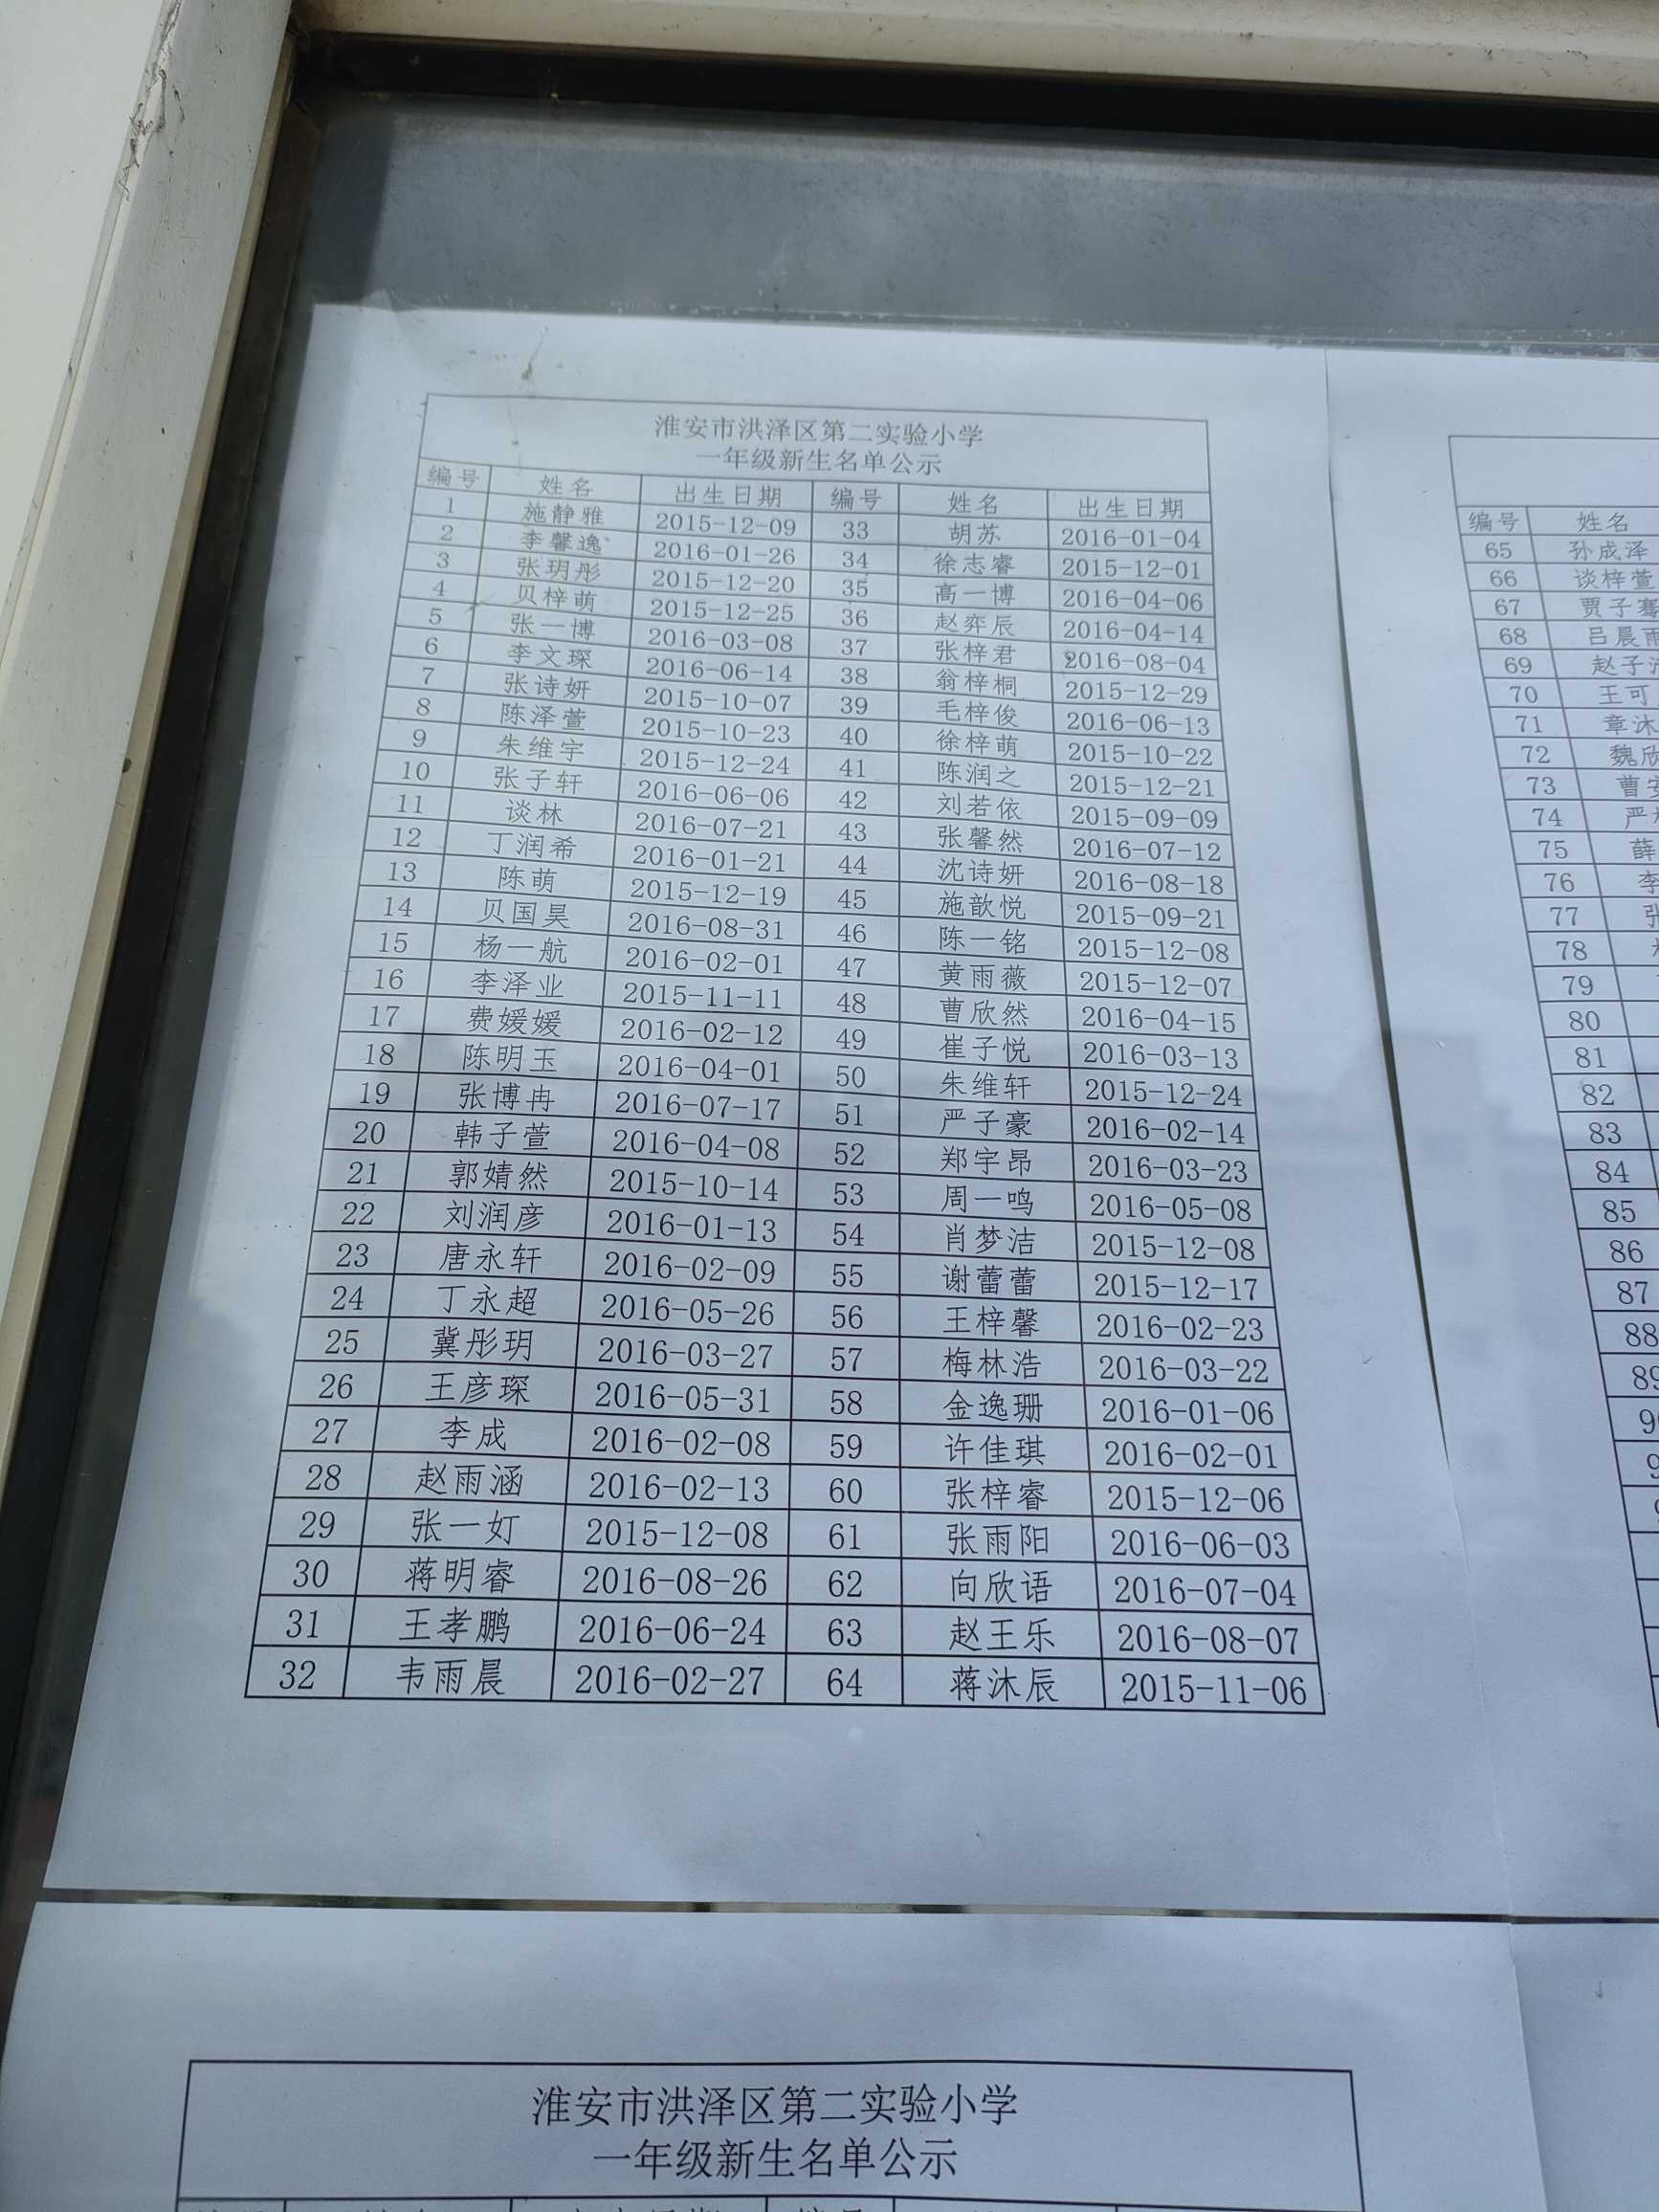 淮安市洪泽区第二实验小学
一年级新生名单公示
编号 姓名 出生日期 编号 姓名 出生日期
1 施静雅 2015-12-09 33 胡苏 2016-01-04
2 李馨逸 2016-01-26 34 徐志睿 2015-12-01
3 张玥彤 2015-12-20 35 高一博 2016-04-06
4 贝梓萌 2015-12-25 36 赵弈辰 2016-04-14
5 张一博 2016-03-08 37 张梓君 2016-08-04
6 李文琛 2016-06-14 38 翁梓桐 2015-12-29
7 张诗妍 2015-10-07 39 毛梓俊 2016-06-13
8 陈泽萱 2015-10-23 40 徐梓萌 2015-10-22
9 朱维宇 2015-12-24 41 陈润之 2015-12-21
10 张子轩 2016-06-06 42 刘若依 2015-09-09
11 谈林 2016-07-21 43 张馨然 2016-07-12
12 丁润希 2016-01-21 44 沈诗妍 2016-08-18
13 陈萌 2015-12-19 45 施歆悦 2015-09-21
14 贝国昊 2016-08-31 46 陈一铭 2015-12-08
15 杨一航 2016-02-01 47 黄雨薇 2015-12-07
16 李泽业 2015-11-11 48 曹欣然 2016-04-15
17 费媛媛 2016-02-12 49 崔子悦 2016-03-13
18 陈明玉 2016-04-01 50 朱维轩 2015-12-24
19 张博冉 2016-07-17 51 严子豪 2016-02-14
20 韩子萱 2016-04-08 52 郑宇昂 2016-03-23
21 郭婧然 2015-10-14 53 周一鸣 2016-05-08
22 刘润彦 2016-01-13 54 肖梦洁 2015-12-08
23 唐永轩 2016-02-09 55 谢蕾蕾 2015-12-17
24 丁永超 2016-05-26 56 王梓馨 2016-02-23
25 冀彤玥 2016-03-27 57 梅林浩 2016-03-22
26 王彦琛 2016-05-31 58 金逸珊 2016-01-06
27 李成 2016-02-08 59 许佳琪 2016-02-01
28 赵雨涵 2016-02-13 60 张梓睿 2015-12-06
29 张一奵 2015-12-08 61 张雨阳 2016-06-03
30 蒋明睿 2016-08-26 62 向欣语 2016-07-04
31 王孝鹏 2016-06-24 63 赵王乐 2016-08-07
32 韦雨晨 2016-02-27 64 蒋沐辰 2015-11-06
编号 姓名
65 孙成泽
66 谈梓萱
67 贾子骞
68 吕晨雨
69 赵子
70 王可
71 章沐
72 魏欣
73 曹安
74 严
75 薛
76 李
77 张
78
79
80
81
82
83
84
85
86
87
88
89
淮安市洪泽区第二实验小学
一年级新生名单公示